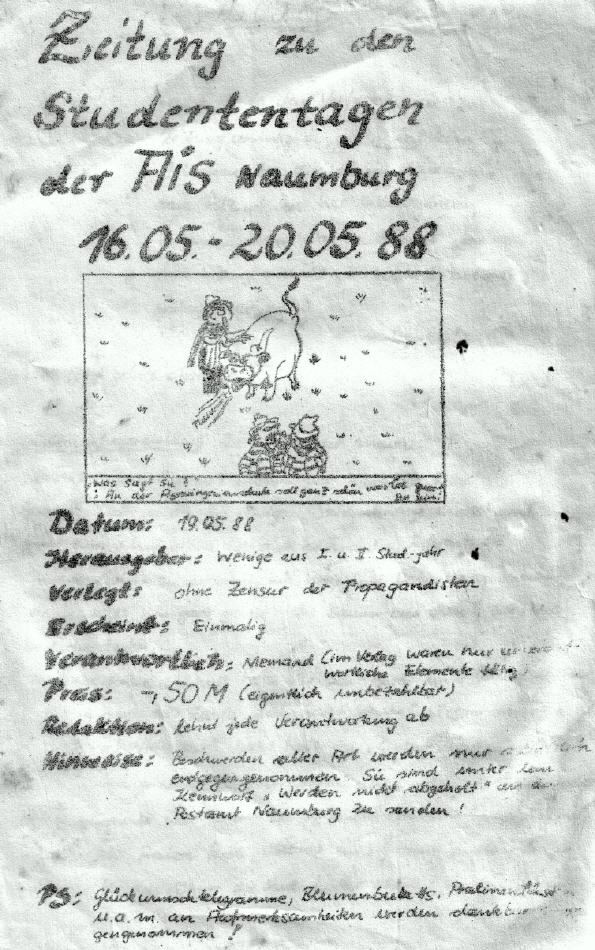 Zeitung zu den
Studententagen
der AIS Naumburg
16.05. - 20.05. 88
Was sagt sie?
: An der soll ganz schön was los
Datum: 19.05.88
Herausgeber: Wenige aus I. u. II. Stud.-jahr
Verlegt: ohne Zensur der Propagandisten
Erscheint: Einmalig
Verantwortlich: Niemand (im Verlag waren nur
wortliche Elemente tätig)
Preis: -,50 M (eigentlich unbezahlbar)
Redaktion: lehnt jede Verantwortung ab
Hinweise: Beschwerden aller Art werden nur
entgegengenommen. Sie sind unter dem
Kennwort "Werden nicht abgeholt" an das
Postamt Naumburg zu senden!
PS: Glückwunschtelegramme, Blumenbuketts,
u.a.m. an Aufmerksamkeiten werden
gengenommen!